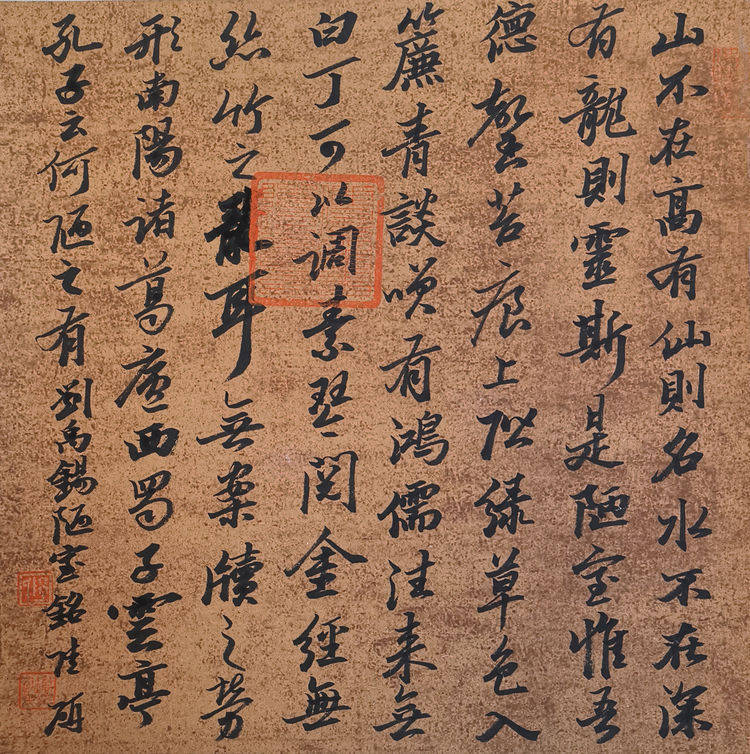 山不在高有仙則名水不在深
有龍則靈斯是陋室惟吾
德馨苔痕上階綠草色入
簾青談咲有鴻儒往来無
白丁可以調素琴閱金經無
絲竹之亂耳無案牘之勞
形南陽諸葛廬西蜀子雲亭
孔子云何陋之有劉禹錫陋室銘